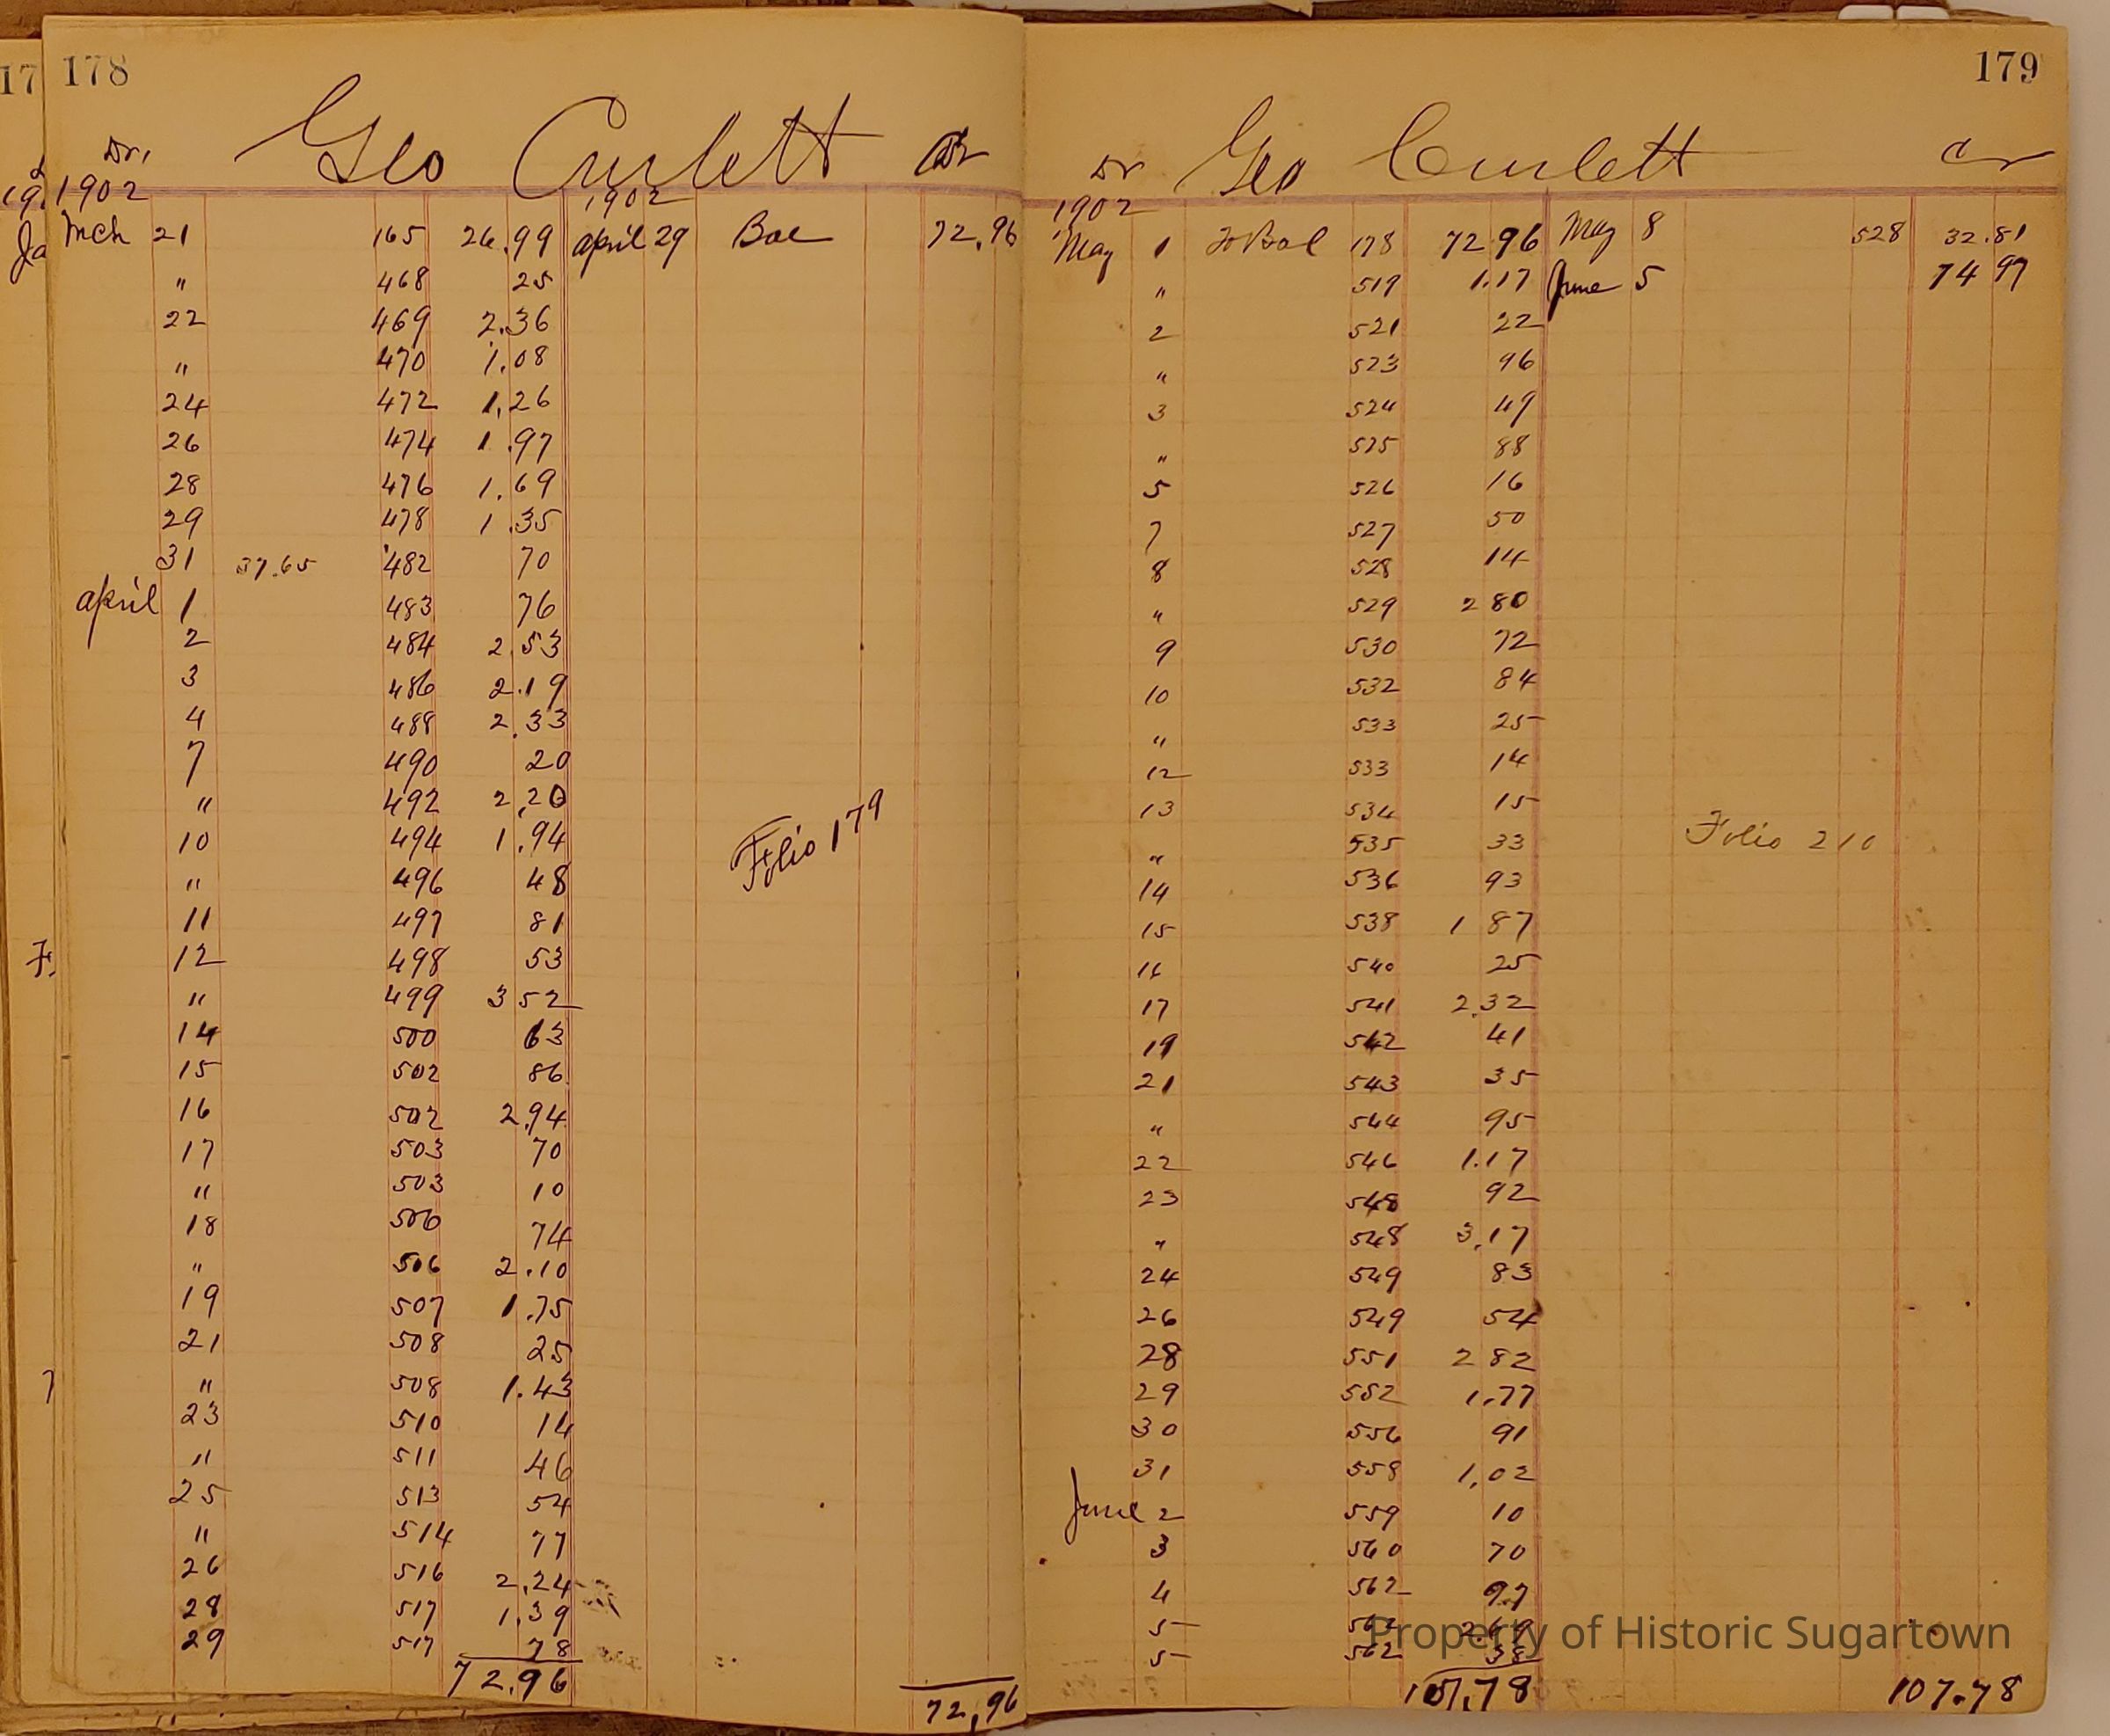 17 178
Dr. Geo Curlett Cr
1902 1902
Mch 21 165 26.99 april 29 Bal 72.96
" 468 25
22 469 2.36
" 470 1.08
24 472 1.26
26 474 1.97
28 476 1.69
29 478 1.35
31 37.65 482 70
april 1 483 76
2 484 2.53
3 486 2.19
4 488 2.33
7 490 20
" 492 2.20
10 494 1.94
Folio 179
" 496 48
11 497 81
12 498 53
" 499 3 52
14 500 63
15 502 86
16 502 2.94
17 503 70
" 503 10
18 506 74
" 506 2.10
19 507 1.75
21 508 25
" 508 1.43
23 510 14
" 511 46
25 513 54
" 514 77
26 516 2.24
28 517 1.39
29 517 78
72.96 72.96
179
Dr Geo Curlett Cr
1902
May 1 To Bal 178 72 96 May 8 528 32.81
" 519 1.17 June 5 74 97
2 521 22
" 523 96
3 524 49
" 525 88
5 526 16
7 527 50
8 528 14
" 529 2 80
9 530 72
10 532 84
" 533 25
12 533 14
13 534 15
" 535 33 Folio 210
14 536 93
15 538 1 87
16 540 25
17 541 2.32
19 542 41
21 543 35
" 544 95
22 546 1.17
23 548 92
" 548 3.17
24 549 83
26 549 54
28 551 2 82
29 552 1.77
30 556 91
31 558 1.02
June 2 559 10
3 560 70
4 562 97
5 562 2.69
5 562 38
107.78 107.78
Property of Historic Sugartown